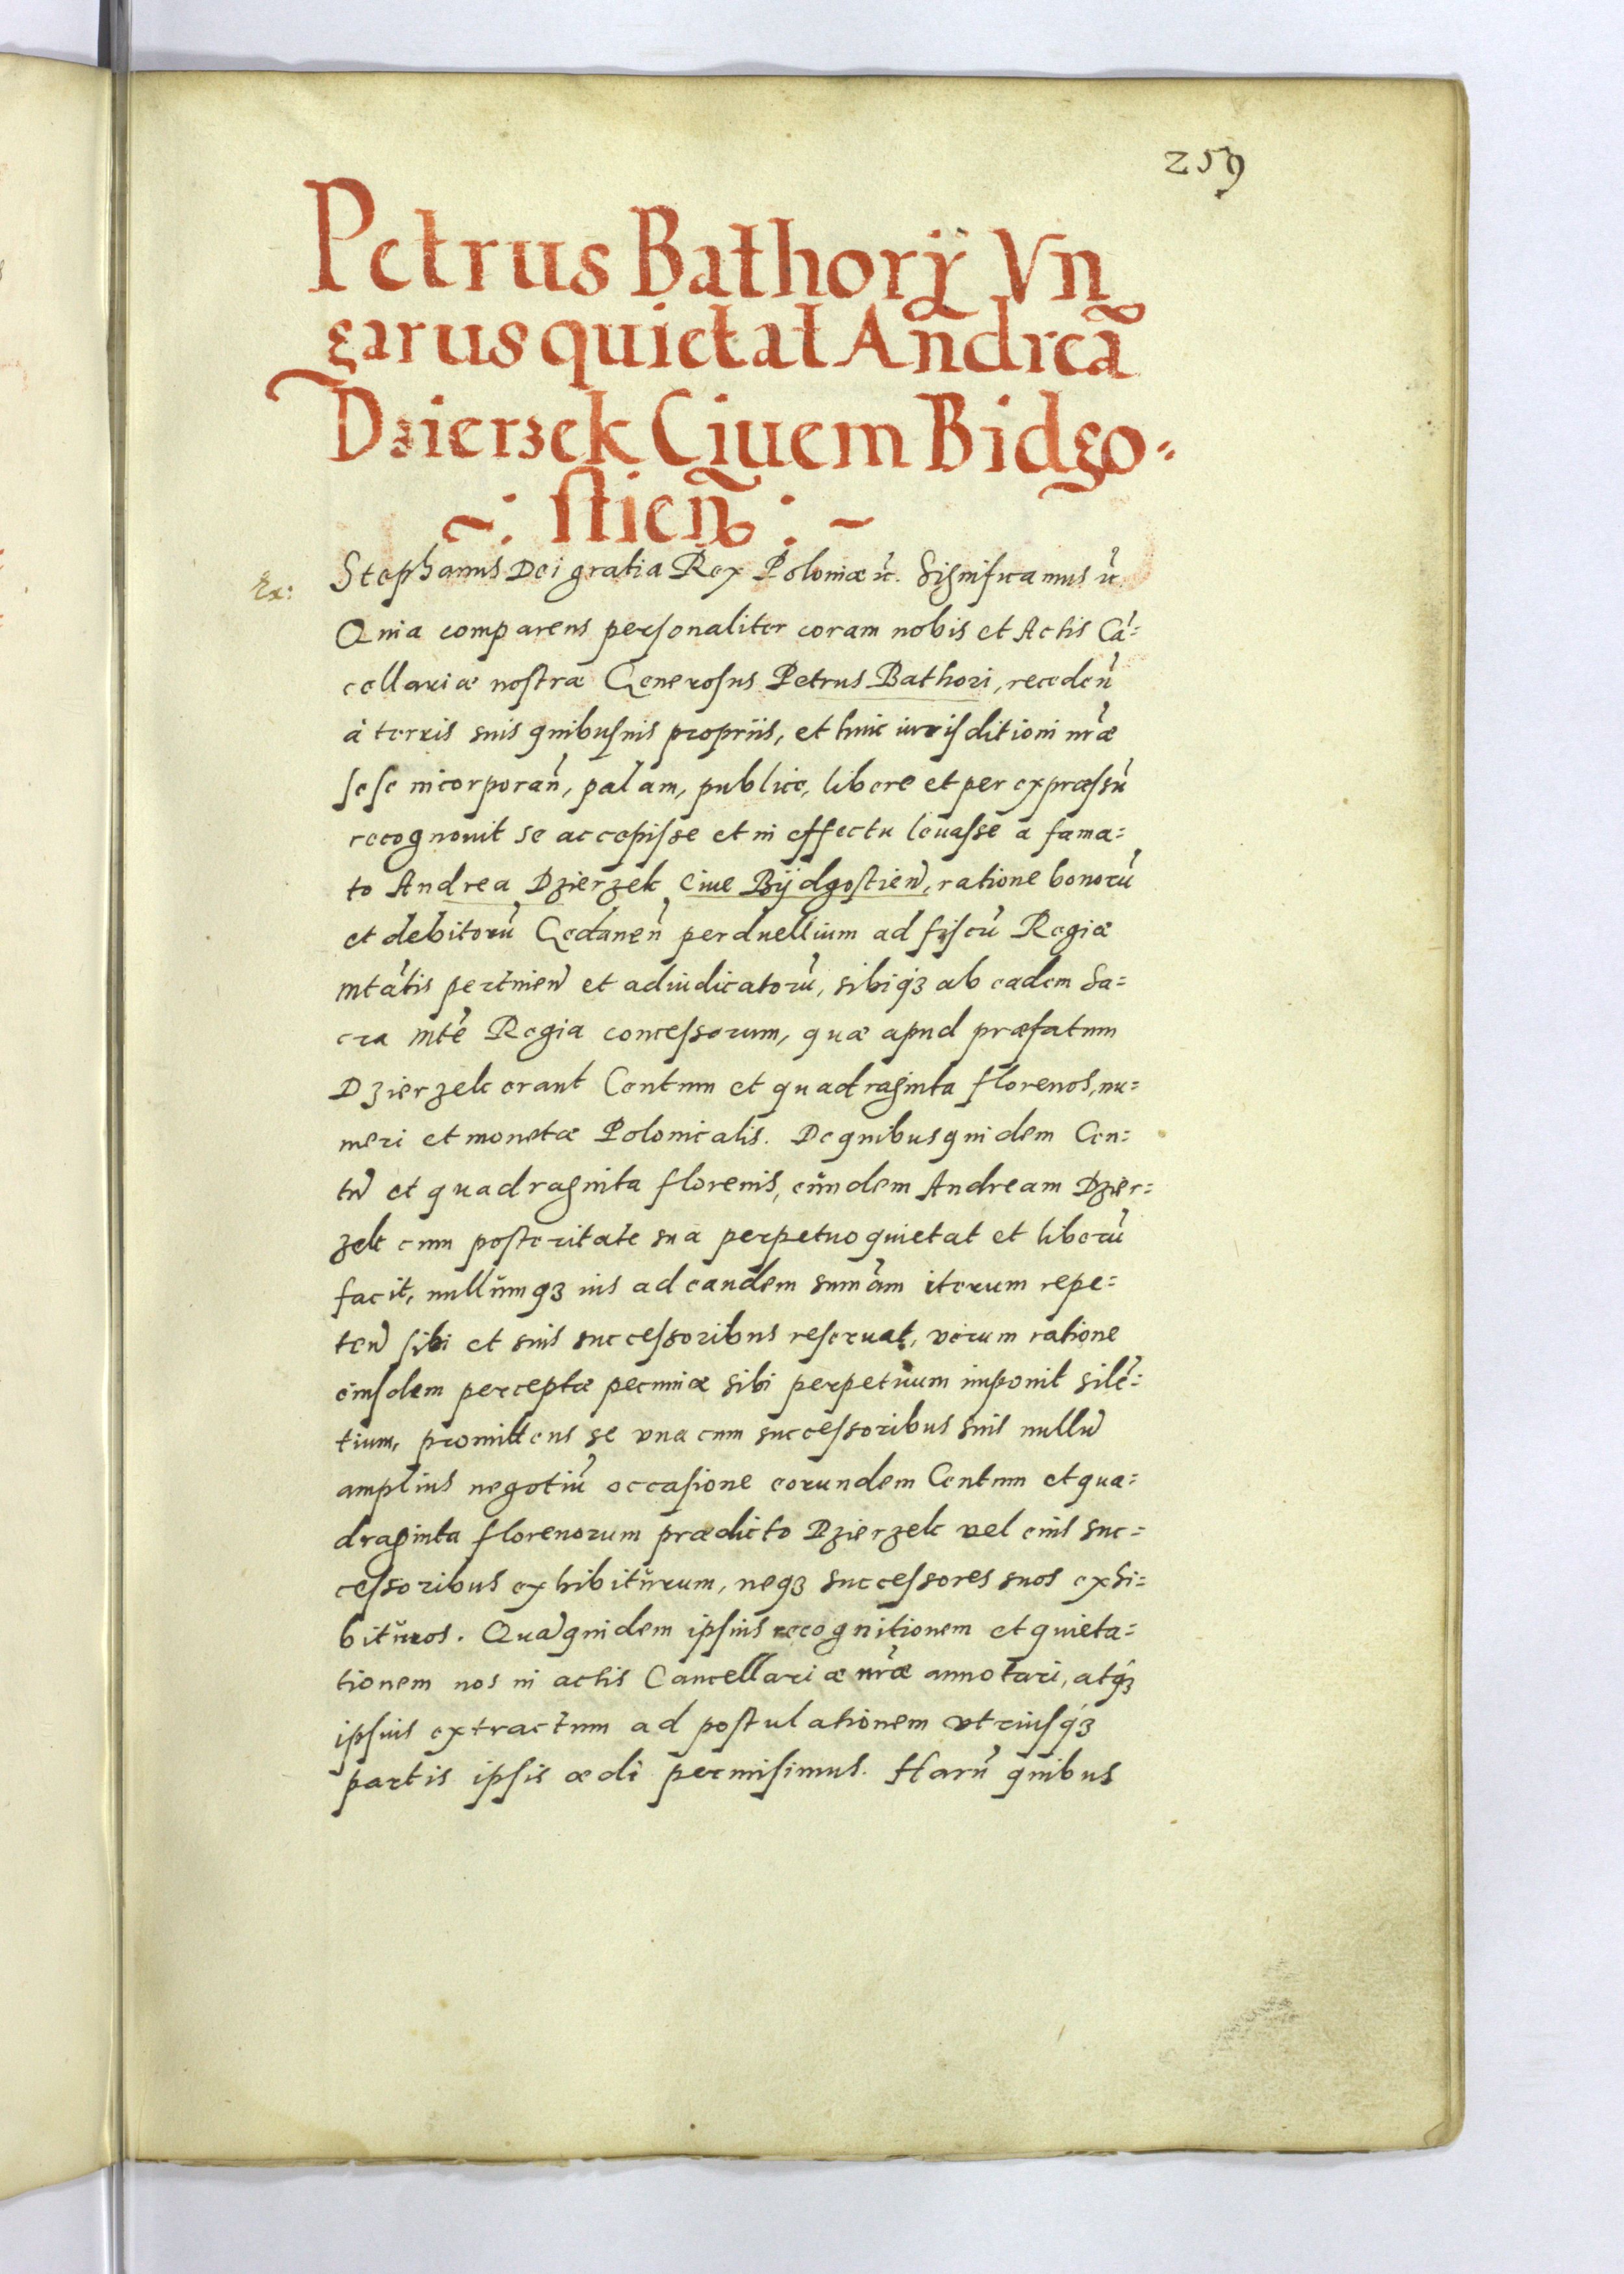 259
Petrus Bathorÿ Vn
garus quietat Andreã
Dzierzek Ciuem Bidgo=
~: stien̄ : ~
Ex:
Stephanus Dei gratia Rex Poloniæ ĩc. Significamus ĩc
Quia comparens personaliter coram nobis et Actis Cã=
cellariæ nostræ Generosus Petrus Bathori, recedeñ
à terris suis quibusuis propriis, et huic iurisditioni nr̃æ
sese incorporañ, palam, publice, libere et per expræssũ
recognouit se accepisse et in effectu leuasse a fama=
to Andrea Dzierzek Ciue Bÿdgostieñ, ratione bonorũ
et debitorũ Gedaneñ perduellium ad fiscũ Regiæ
Mtãtis pertineñ et adiudicatorũ, sibiqꝫ ab eadem Sa=
cra Mtẽ Regia concessorum, quæ apud præfatum
Dzierzek erant Centum et quadraginta florenos, nu=
meri et monetæ Polonicalis. De quibus quidem Cen=
tũ et quadraginta florenis, eundem Andream Dzier=
zek cum posteritate sua perpetuo quietat et liberũ
facit, nullumqꝫ ius ad eandem sum̃am iterum repe=
teñ sibi et suis successoribus reseruat, verum ratione
eiusdem perceptæ pecuniæ sibi perpetuum imponit silẽ=
tium, promittens se vna cum successoribus suis nullũ
amplius negotiũ occasione eorundem Centum et qua=
draginta florenorum prædicto Dzierzek vel eius suc=
cessoribus exhibiturum, neqꝫ successores suos exhi=
bituros. Quã quidem ipsius recognitionem et quieta=
tionem nos in actis Cancellariæ nr̃æ annotari, atqꝫ
ipsius extractum ad postulationem vtriusqꝫ
partis ipsis ædi permisimus. Harũ quibus